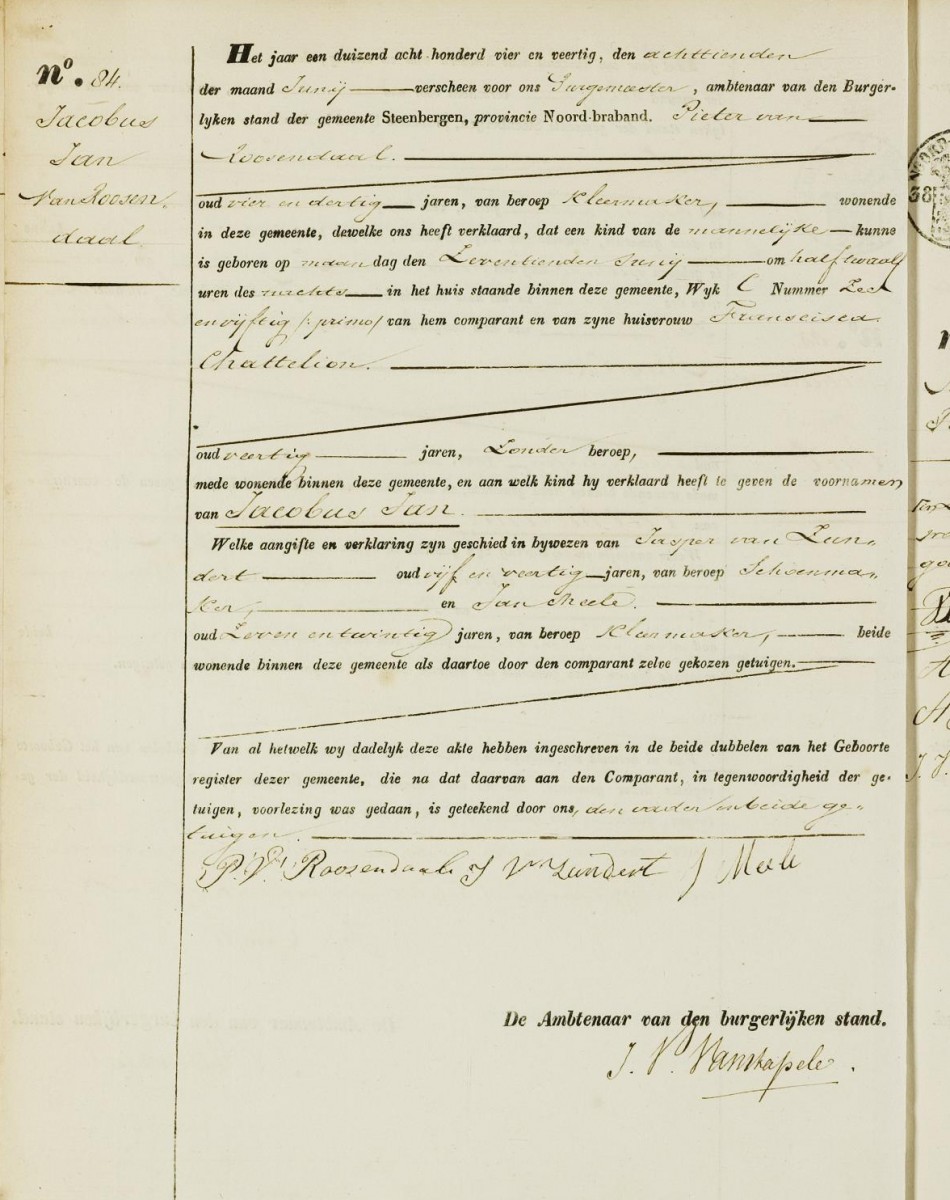 No. 84.
Jacobus
Jan
Van Roosen,
daal
Het jaar een duizend acht honderd vier en veertig, den achttienden
der maand Junij verscheen voor ons Burgemeester, ambtenaar van den Burger-
lyken stand der gemeente Steenbergen, provincie Noord-braband. Pieter van
Roosendaal.
oud vier en dertig jaren, van beroep kleermaker, wonende
in deze gemeente, dewelke ons heeft verklaard, dat een kind van de mannelijke kunne
is geboren op maan dag den Zeventienden Junij om half twaalf
uren des nachts in het huis staande binnen deze gemeente, Wyk C Nummer Zes
en vijftig /: primo/ van hem comparant en van zyne huisvrouw Francisca
Chattelion.
oud veertig jaren, Zonder beroep,
mede wonende binnen deze gemeente, en aan welk kind hy verklaard heeft te geven de voornamen
van Jacobus Jan.
Welke aangifte en verklaring zyn geschied in bywezen van Jasper van Zun,
dert oud vijf en veertig jaren, van beroep Schoenma,
ker, en Jan Meele.
oud Zeven en twintig jaren, van beroep kleermaker, beide
wonende binnen deze gemeente als daartoe door den comparant zelve gekozen getuigen.
Van al hetwelk wy dadelyk deze akte hebben ingeschreven in de beide dubbelen van het Geboorte
register dezer gemeente, die na dat daarvan aan den Comparant, in tegenwoordigheid der ge-
tuigen, voorlezing was gedaan, is geteekend door ons, den vader en beide ge,
tuigen.
P. Vn Roosendaal J Vn Zundert J Meele
De Ambtenaar van den burgerlijken stand.